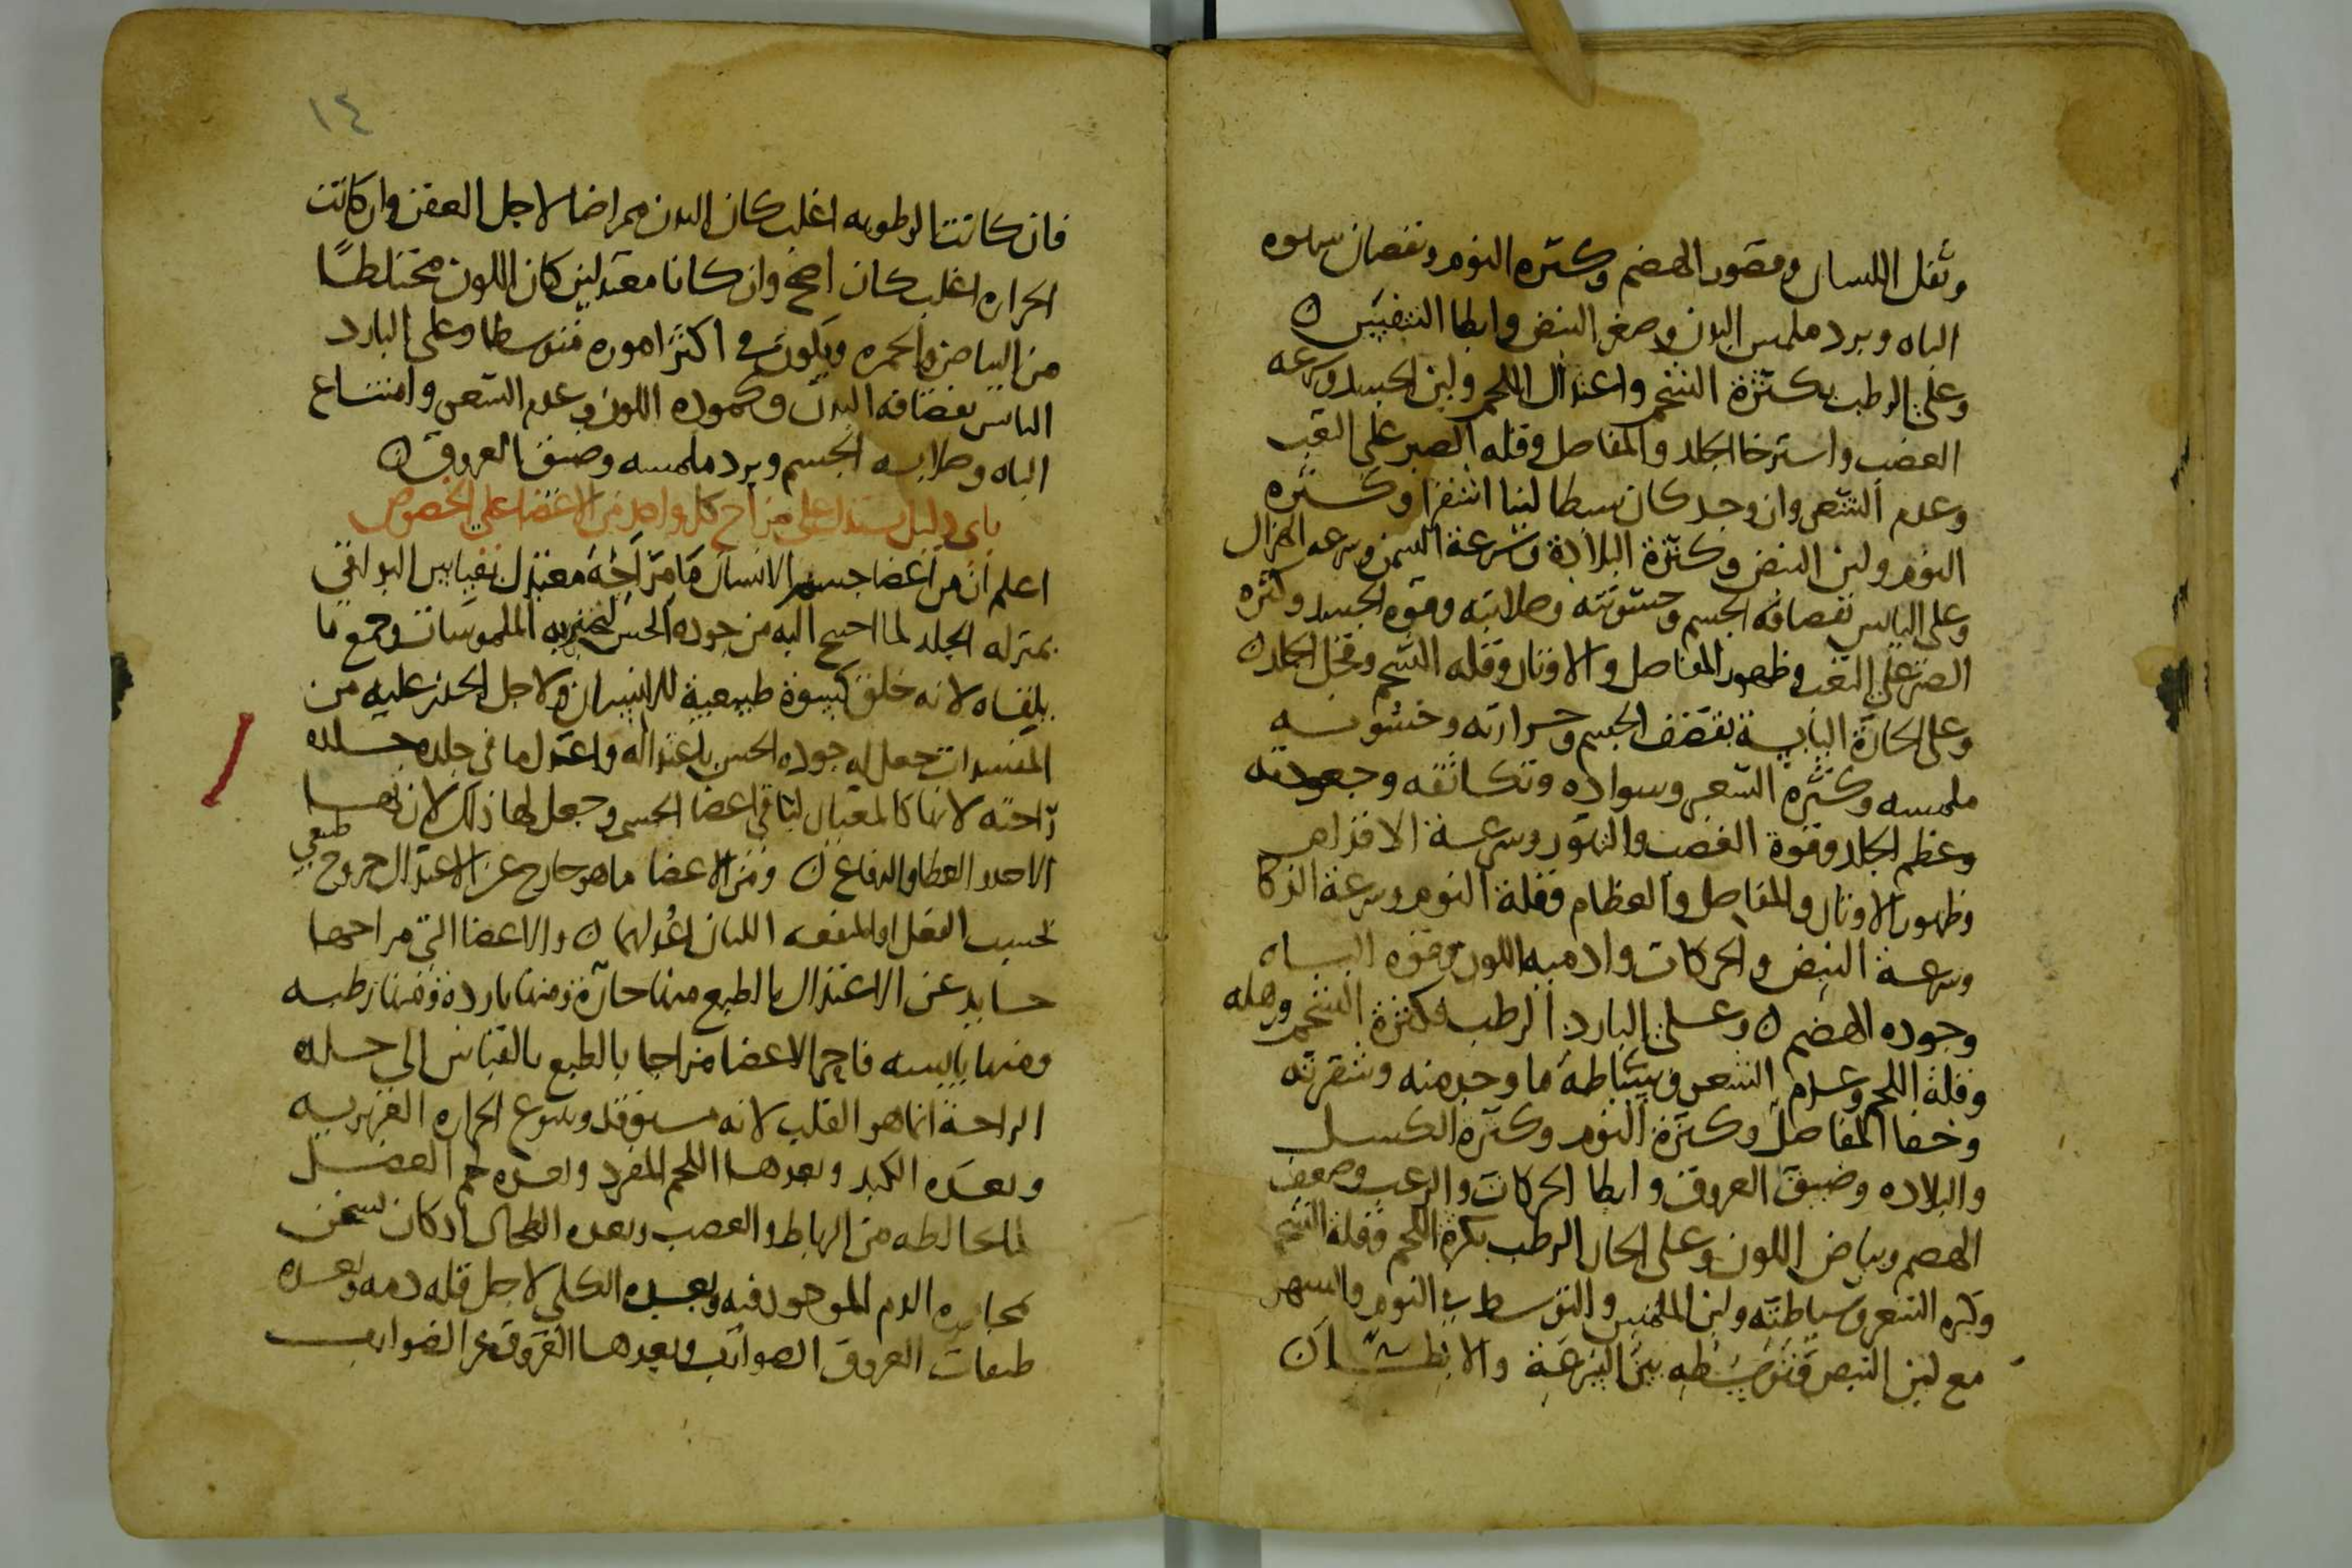 وثقل اللسان وقصور الهضم وكثره النوم ونقصان شهوه
الباه وبرد ملمس البدن وصغر النبض وابطا التنفس ن
وعلى الرطب بكثرة الشحم واعتدال اللحم ولين الجسد وسرعه
الغضب واسترخا الجلد والمفاصل وقله الصبر على التعب
وعدم الشعر وان وجد كان سبطا لينا اشقرا وكثره
النوم ولين النبض وكثرة البلادة وسرعة السمن وسرعه الهزال
وعلى اليابس نقصافه الجسم وخشونته وصلابته وقوه الجسد وكثره
الصبر على التعب وظهور المفاصل والاوتار وقله الشحم وقحل الجلد ن
وعلى الحارة اليابسة بقضف الجسم وحرارته وخشونه
ملمسه وكثره الشعر وسواده وتكاثفه وجعودته
وعظم الجلد وقوة الغضب والتهور وسرعة الاقدام
وظهور الاوتار والمفاصل والعظام وقلة النوم وسرعة الذكا
وسرعة النبض والحركات وادميه اللون وقوه الباه
وجوده الهضم ن وعلى البارد الرطب بكثرة الشحم ورهله
وقلة اللحم وعدم الشعر وسباطة ما وجد منه وشقرته
وخفا المفاصل وكثرة النوم وكثرة الكسل
والبلاده وضيق العروق وابطا الحركات والرعب وضعف
الهضم وبياض اللون وعلى الحار الرطب بكثرة اللحم وقلة الشحم
وكثره الشعر وسباطته ولين الملمس والتوسط في النوم والسهر
مع لين النبض وتوسطه بين السرعة والابطا ن
١٤
فان كانت الرطوبه اغلب كان البدن ممراضا لاجل العفن وان كانت
الحراره اغلب كان اصح وان كانا معتدلين كان اللون مختلطًا
من البياض والحمره ويكون في اكثر اموره متوسطا وعلى البارد
اليابس بقضافه البدن وكموده اللون وعدم الشعر وامتناع
الباه وصلابه الجسم وبرد ملمسه وضيق العروق ن
باي دليل يستدل على مزاج كل واحد من الاعضا على الخصوص
اعلم ان من اعضا جسم الانسان ما مزاجه معتدل بقياس البواقي
بمنزله الجلد لما احتيج اليه من جوده الحس لتميز به الملموسات وجميع ما
يلقاه لانه خلق كسوة طبيعية للانسان ولاجل الحذر عليه من
المفسدات جعل له جوده الحس باعتداله واعتدل ما في جلده جلده
راحته لانها كالمعيار لباقي اعضا الجسم وجعل لها ذلك لان بها
الاخذ والعطا والدفاع ن ومن الاعضا ما هو خارج عن الاعتدال خروج طبيعي
بحسب الفعل او المنفعه اللذان اعد لهما ن والاعضا التي مزاجها
حايد عن الاعتدال بالطبع منها حارة ومنها باردة ومنها رطبه
ومنها يابسه فاحر الاعضا مزاجا بالطبع بالقياس الى جلده
الراحة انما هو القلب لانه مستوقد وينبوع الحراره الغريزيه
وبعده الكبد وبعدها اللحم المفرد وبعده لحم العضل
لمخالطه من الرباط والعصب وبعده الطحال اذ كان يسخن
بمجاوره الدم الموجود فيه وبعده الكلى لاجل قله دمه وبعده
طبقات العروق الضوارب وبعدها العروق غير الضوارب